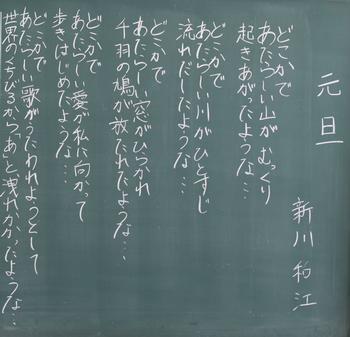 元旦
新川和江
どこかで
あたらしい山が むっくり
起きあがったような…
どこかで
あたらしい川が ひとすじ
流れだしたような…
どこかで
あたらしい窓がひらかれ
千羽の鳩が放たれたような…
どこかで
あたらしい愛が私に向かって
歩きはじめたような…
どこかで
あたらしい歌がうたわれようとして
世界のくちびるから「あ」と洩れかかったような…